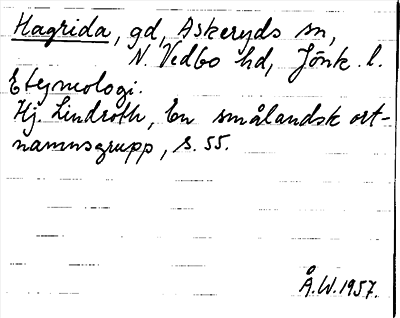 Hagrida, gd, Askeryds sn,
N. Vedbo hd, Jönk. l.
Etymologi.
Hj. Lindroth, En småländsk ort-
namnsgrupp, s. 55.
Å.W. 1957.